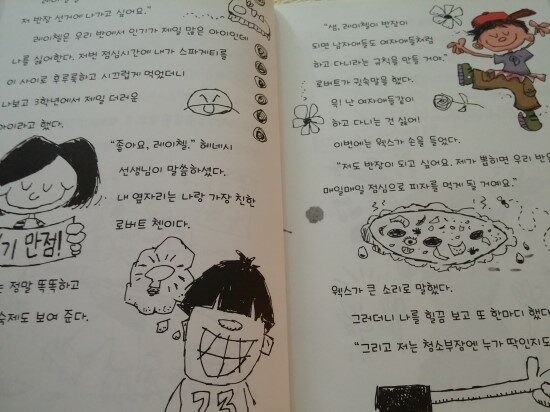 저 반장 선거에 나가고 싶어요."
레이첼은 우리 반에서 인기가 제일 많은 아이인데
나를 싫어한다. 저번 점심시간에 내가 스파게티를
이 사이로 후루룩하고 시끄럽게 먹었더니
나보고 3학년에서 제일 더러운
아이라고 했다.
"좋아요, 레이첼." 헤네시
선생님이 말씀하셨다.
내 옆자리는 나랑 가장 친한
로버트 첸이다.
기 만점!
는 정말 똑똑하고
숙제도 보여 준다.
23
"쌤, 레이첼이 반장이
되면 남자애들도 여자애들처럼
하고 다니라는 규칙을 만들 거야."
로버트가 귓속말을 했다.
윅! 난 여자애들같이
하고 다니는 건 싫어!
이번에는 웩스가 손을 들었다.
"저도 반장이 되고 싶어요. 제가 뽑히면 우리 반은
매일매일 점심으로 피자를 먹게 될 거예요."
웩스가 큰 소리로 말했다.
그러더니 나를 힐끔 보고 또 한마디 했다.
"그리고 저는 청소부장엔 누가 딱인지도